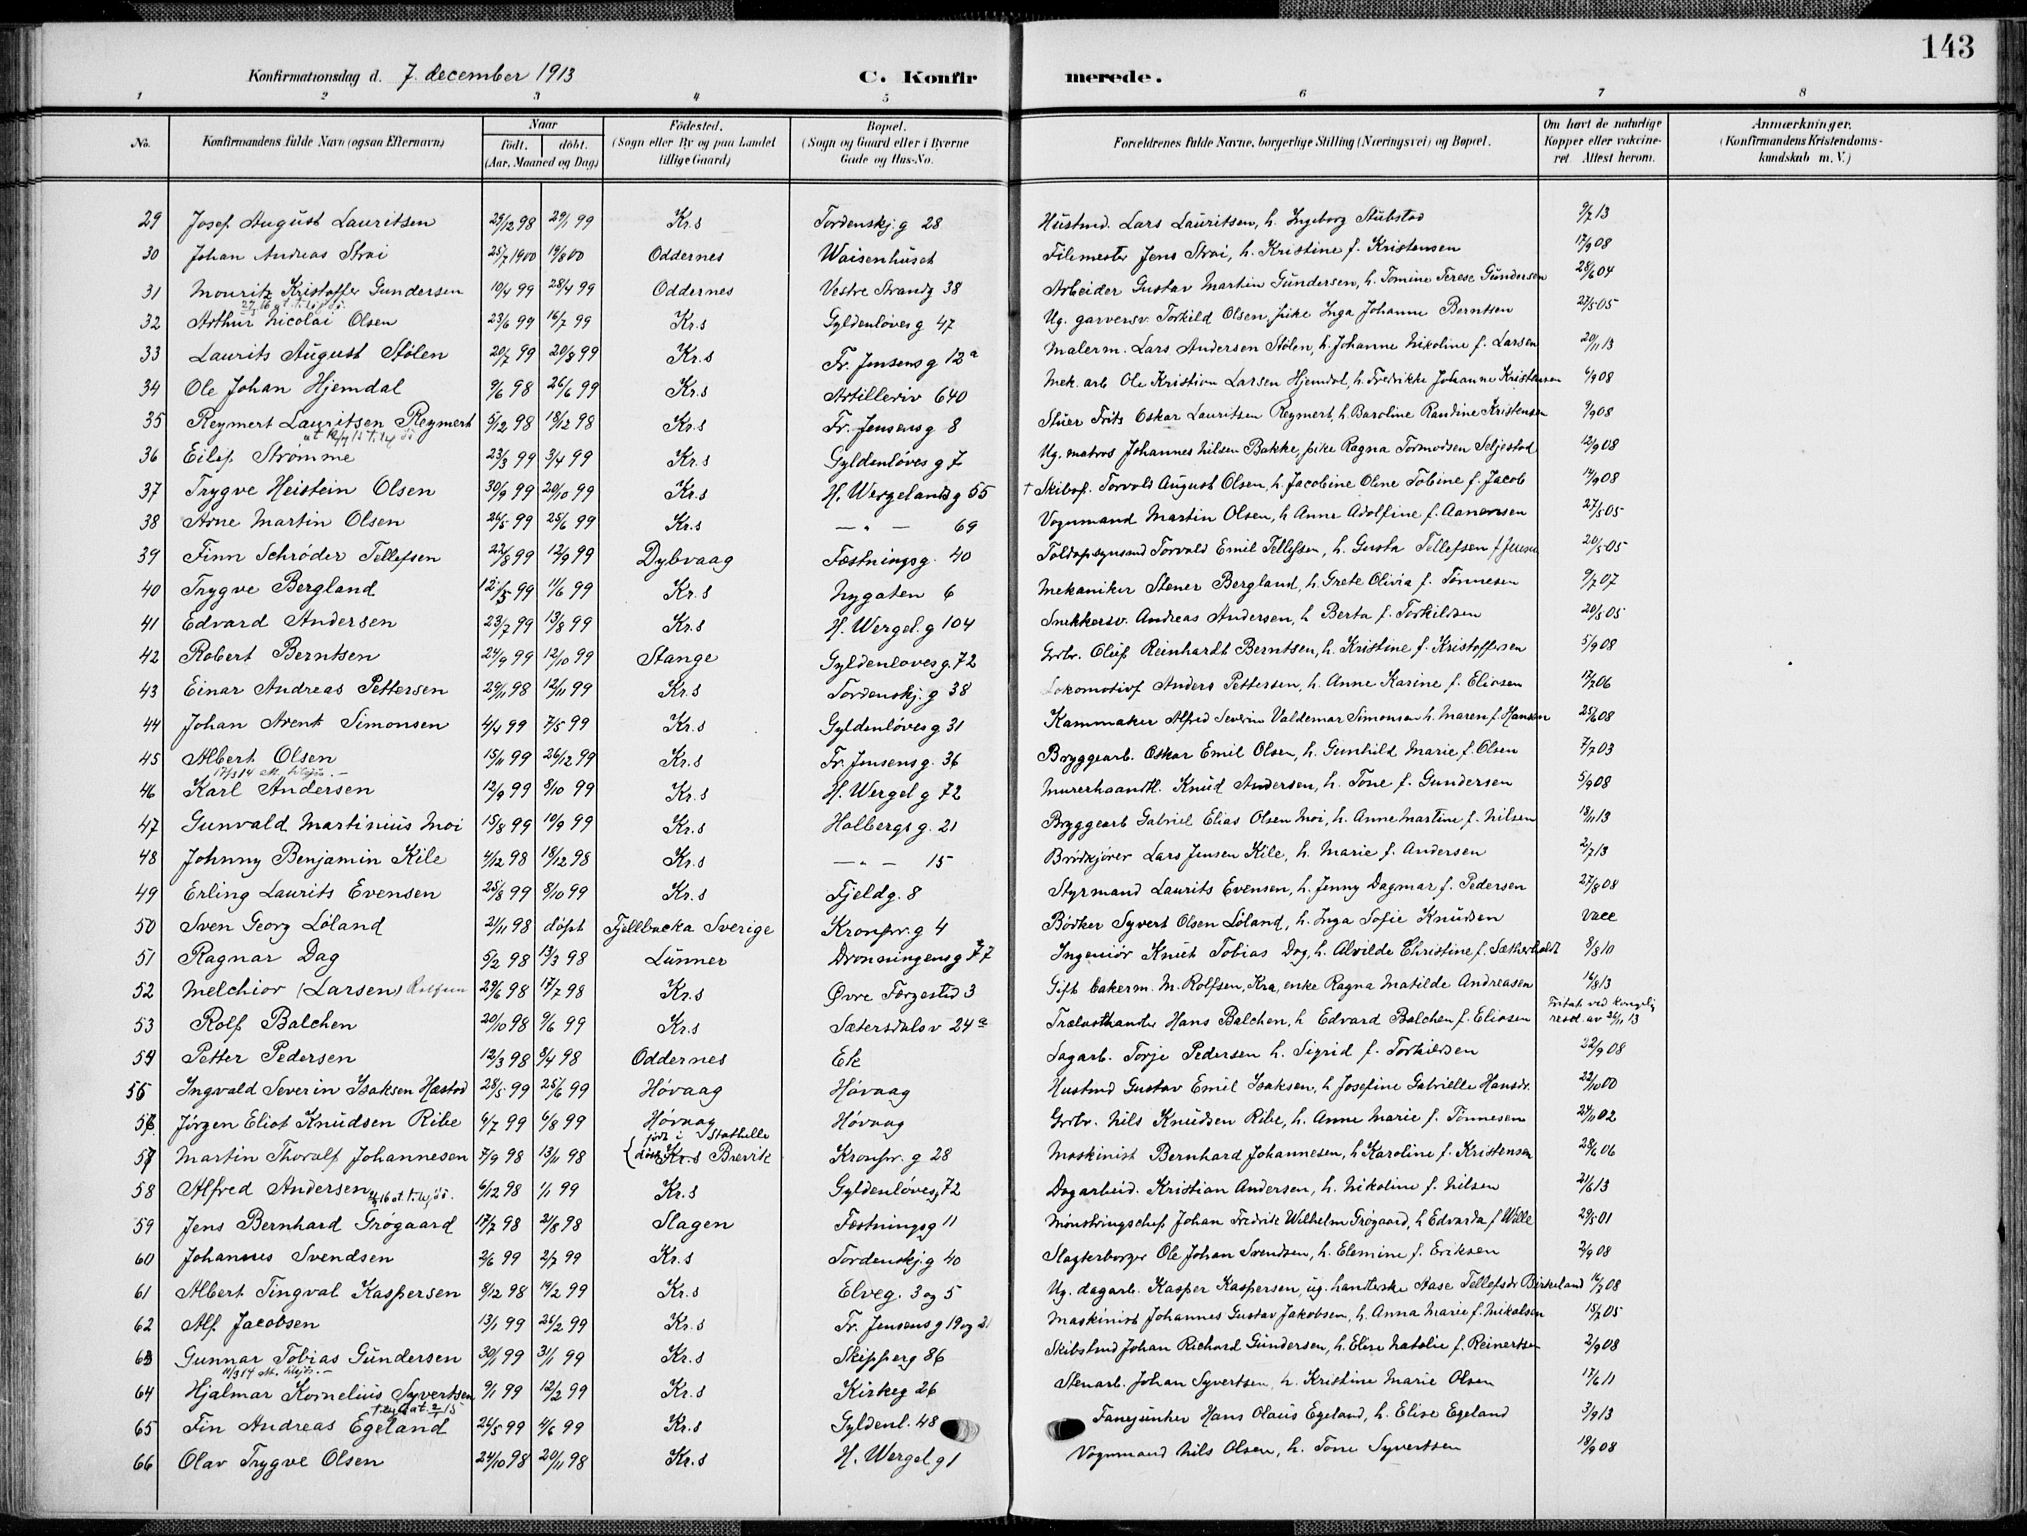 143
Konfirmationsdag d. 7. december 1913 C. Konfirmerede.
1 2 3 4 5 6 7 8
No. Konfirmandens fulde Navn (ogsaa Efternavn) Naar født. døbt. (Aar, Maaned og Dag) Fødested. (Sogn eller By og paa Landet tillige Gaard) Bopæl. (Sogn og Gaard eller i Byerne Gade og Hus-No. Forældrenes fulde Navne, borgerlige Stilling (Næringsvei) og Bopæl. Om havt de naturlige Kopper eller vakcineret. Attest herom. Anmærkninger. (Konfirmandens Kristendomskundskab m. V.)
29 Josef August Lauritsen 29/12 98 29/1 99 Kr.s Tordenskj. g 28 Hustmd. Lars Lauritsen, h. Ingeborg Stubstad 9/7 13
30 Johan Andreas Strai 25/7 1900 19/8 00 Oddernes Waisenhuset Filemester Jens Strai, h. Kristine f. Kristensen 17/9 08
31 Mouritz Kristoffer Gundersen 10/4 99 28/4 99 Oddernes Vestre Strandg 38 Arbeider Gustav Martin Gundersen, h. Tomine Terese Gundersen 28/6 04
32 Arthur Nicolai Olsen 23/6 99 16/7 99 Kr.s Gyldenløves g 47 Ug. garversv. Torkild Olsen, pike Inga Johanne Berntsen 27/5 05
33 Laurits August Stølen 20/7 99 20/8 99 Kr.s Fr. Jensens g 12a Malerm. Lars Andersen Stølen, h. Johanne Nikoline f. Larsen 20/11 13
34 Ole Johan Hjemdal 9/6 98 26/6 99 Kr.s Artilleriv 640 Mek. arb Ole Kristian Larsen Hjemdal, h. Fredrikke Johanne Kristensen 6/9 08
35 Reymert Lauritsen Reymert 5/12 98 18/12 98 Kr.s Fr. Jensens g 8 Stuer Frits Oskar Lauritsen Reymert, h. Baroline Randine Kristensen 9/9 08
36 Eilif Strømme 23/3 99 3/4 99 Kr.s Gyldenløves g 7 Ug. matros Johannes Nilsen Bakke, pike Ragna Tormodsen Seljestad 12/9 08
37 Trygve Heistein Olsen 30/9 99 20/10 99 Kr.s H. Wergelands g 55 † Skibsf. Torvald August Olsen, h. Jacobine Oline Tobine f. Jacob 14/9 08
38 Arne Martin Olsen 26/5 99 25/6 99 Kr.s — „ — 69 Vognmand Martin Olsen, h Anne Adolfine f. Aanensen 27/5 05
39 Finn Schrøder Tellefsen 22/8 99 12/9 99 Dybvaag Fæstningsg. 40 Toldopsynsmd Torvald Emil Tellefsen, h. Gusta Tellefsen f Jensen 20/5 05
40 Trygve Bergland 12/5 99 11/6 99 Kr.s Nygaten 6 Mekaniker Stener Bergland, h. Grete Olivia f. Tønnesen 9/7 07
41 Edvard Andersen 23/7 99 13/8 99 Kr.s H. Wergel. g 104 Snekkersv. Andreas Andersen, h Berta f. Torkildsen 20/5 05
42 Robert Berntsen 24/9 99 12/10 99 Stange Gyldenløves g. 72 Grbr. Oluf Reinhardt Berntsen, h. Kristine f. Kristoffersen 5/9 08
43 Einar Andreas Pettersen 29/11 98 12/11 99 Kr.s Tordenskj. g 38 Lokomotivf Anders Pettersen, h. Anne Karine f. Eliasen 17/7 06
44 Johan Arent Simonsen 4/4 99 7/5 99 Kr.s Gyldenløves g 31 Kammaker Alfred Severin Valdemar Simonsen h. Maren f. Hansen 25/6 08
45 Albert Olsen 15/11 99 26/12 99 Kr.s Fr. Jensens g. 36 Bryggearb. Oskar Emil Olsen, h. Gunhild Marie f. Olsen 7/7 03
46 Karl Andersen 12/9 99 8/10 99 Kr.s H. Wergel g 72 Murerhaandl. Knud Andersen, h. Tone f. Gundersen 5/9 08
47 Gunvald Martinius Moi 15/8 99 10/9 99 Kr.s Holbergs g. 21 Bryggearb Gabriel Elias Olsen Moi, h. Anne Martine f. Nilsen 18/11 13
48 Johnny Benjamin Kile 4/12 98 18/12 98 Kr.s — „ — 15 Brødkjører Lars Jensen Kile, h. Marie f. Andersen 2/7 13
49 Erling Laurits Evensen 25/8 99 8/10 99 Kr.s Fjeldg. 8 Styrmand Laurits Evensen, h. Jenny Dagmar f. Pedersen 27/8 08
50 Sven Georg Løland 21/11 98 døpt Fjellbacka Sverige Kronpr. g 4 Bødker Syvert Olsen Løland, h. Inga Sofie Knudsen vacc
51 Ragnar Dag 5/2 98 13/3 98 Lunner Dronningens g 77 Ingeniør Knut Tobias Dag, h. Alvilde Christine f. Sæterholdt 8/8 10
52 Melchior (Larsen) Rolfsen 29/6 98 17/7 98 Kr.s Øvre Færgested 3 Gift bakerm. M. Rolfsen, Kra, enke Ragna Matilde Andreasen 16/8 13
53 Rolf Balchen 20/10 98 9/6 99 Kr.s Sætersdals v 24a Trælasthandler Hans Balchen, h Edvard Balchen f. Eliasen Fritat ved kongelig resol. av 26/11 13
54 Petter Pedersen 12/3 98 3/4 98 Oddernes Ek Sagarb. Torje Pedersen h. Sigrid f. Torkildsen 22/9 08
55 Ingvald Severin Isaksen Hæstad 28/5 99 25/6 99 Høvaag Høvaag Hustmd Gustav Emil Isaksen, h Josefine Gabrielle Hansdr. 22/10 00
56 Jørgen Eliot Knudsen Ribe 6/7 99 6/8 99 Høvaag Høvaag Grbr. Nils Knudsen Ribe, h. Anne Marie f. Tønnesen 24/11 02
57 Martin Thoralf Johannesen 7/9 98 13/11 98 født i Stathelle døbt Kr.s Brevik Kronpr. g 28 Maskinist Bernhard Johannesen, h Karoline f. Kristensen 28/6 06
58 Alfred Andersen 6/12 98 1/1 99 Kr.s Gyldenløvesg 72 Dagarbeid. Kristian Andersen, h. Nikoline f. Nilsen 21/6 13
59 Jens Bernhard Grøgaard 17/7 98 21/8 98 Slagen Fæstningsg 11 Mønstringschef Johan Fredrik Wilhelm Grøgaard, h Edvarda f Wille 29/5 01
60 Johannes Svendsen 2/6 99 2/7 99 Kr.s Tordenskj. g 40 Slagterborger Ole Johan Svendsen, h. Elemine f. Eriksen 2/9 08
61 Albert Tingval Kaspersen 8/12 98 19/2 99 Kr.s Elveg. 3 og 5 Ug. dagarb. Kasper Kaspersen, ug. hanterske Aase Tellefsdr Birkeland 16/7 08
62 Alf Jacobsen 13/1 99 26/2 99 Kr.s Fr. Jensens g 19 og 21 Maskinist Johannes Gustav Jakobsen, h. Anna Marie f. Nikolsen 15/7 05
63 Gunnar Tobias Gundersen 30/1 99 31/1 99 Kr.s Skipperg 86 Skibstmd Johan Richard Gundersen, h. Elise Natalie f. Reinertsen 2/9 08
64 Hjalmar Kornelius Syvertsen 9/1 99 12/2 99 Kr.s Kirkeg 26 Stenarb. Johan Syvertsen, h. Kristine Marie Olsen 17/6 11
65 Fin Andreas Egeland 24/5 99 4/6 99 Kr.s Gyldenl. 48 Fanejunker Hans Olaus Egeland, h. Elise Egeland 3/9 13
66 Olav Trygve Olsen 24/10 98 20/11 98 Kr.s H. Wergel g 1 Vognmand Nils Olsen, h. Tone Syvertsen 18/9 08